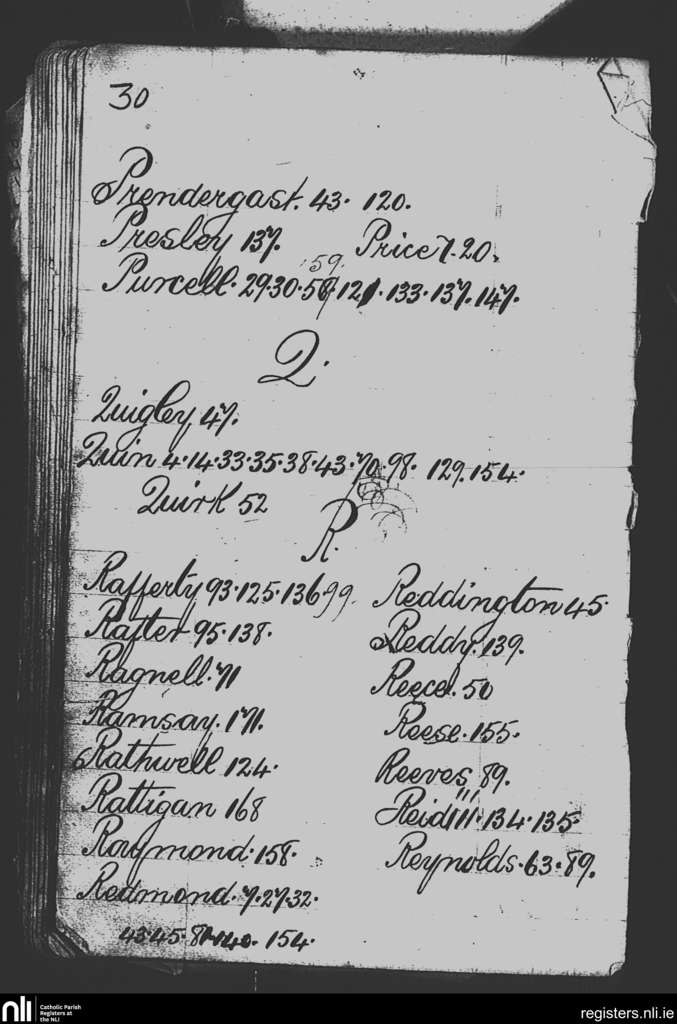 30
Prendergast. 43. 120.
Presley 137. Price 7. 20.
59.
Purcell. 29. 30. 121. 133. 137. 147.
Q.
Quigley 47.
Quin 4. 14. 33. 35. 38. 43. 70. 98. 129. 154.
Quirk 52
R.
Rafferty 93. 125. 136. 99.
Rafter 95. 138.
Ragnell. 71
Ramsay. 171.
Rathwell 124.
Rattigan 168
Raymond. 158.
Redmond. 7. 27. 32.
43. 45. 140. 154.
Reddington 45.
Reddy. 139.
Reece. 50
Reese. 155.
Reeves 89.
Reid 111. 134. 135.
Reynolds. 63. 89.
nli Catholic Parish
Registers at
the NLI
registers.nli.ie